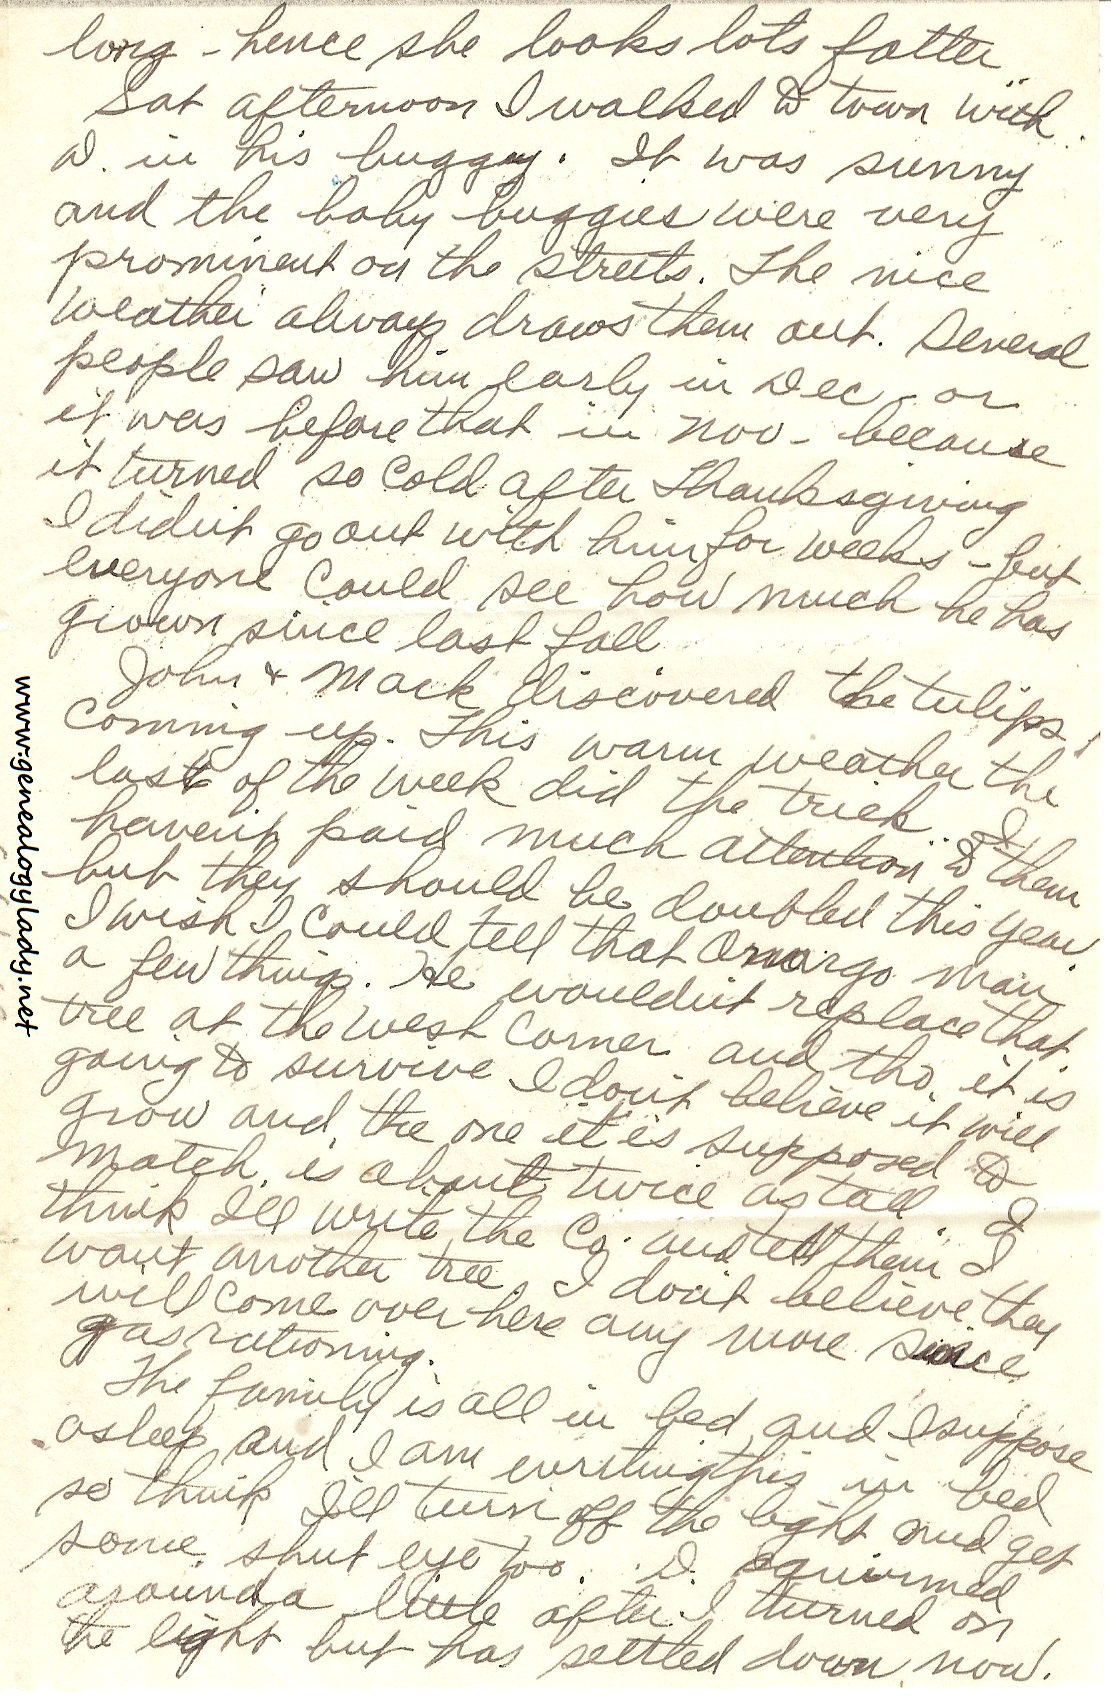 long - hence she looks lots fatter
Sat afternoon I walked to town with
D. in his buggy. It was sunny
and the baby buggies were very
prominent on the streets. The nice
weather always draws them out. Several
people saw him early in Dec or
it was before that in Nov - because
it turned so cold after Thanksgiving
I didn't go out with him for weeks - but
everyone could see how much he has
grown since last fall
John & Mack discovered the tulips
coming up. This warm weather the
last of the week did the trick. I
haven't paid much attention to them
but they should be doubled this year
I wish I could tell that Onargo man
a few things. He wouldn't replace that
tree at the west corner and tho it is
going to survive I don't believe it will
grow and the one it is supposed to
match is about twice as tall. I
think I'll write the Co. and tell them I
want another tree. I don't believe they
will come over here any more since
gas rationing.
The family is all in bed and I suppose
asleep and I am writing this in bed
so think I'll turn off the light and get
some shut eye too. D. squirmed
around a little after I turned on
the light but has settled down now.
www.genealogylady.net